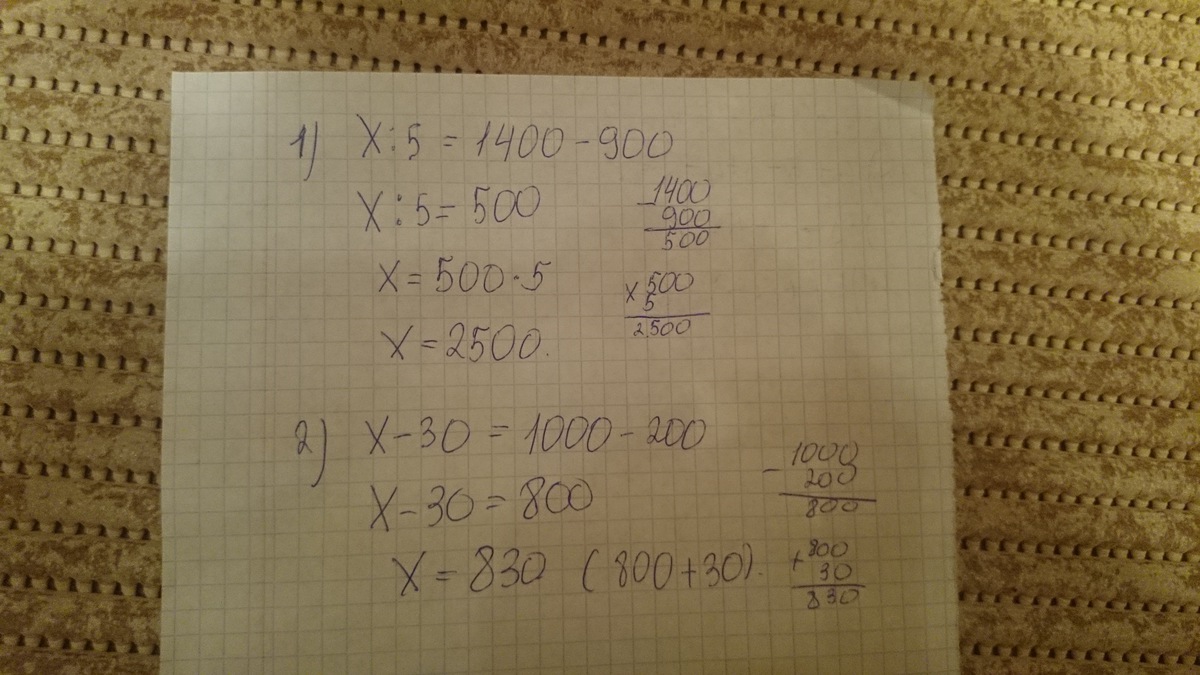 1) X:5 = 1400 - 900
X:5 = 500
X = 500 · 5
X = 2500.
- 1400
900
500
x 500
5
2500
2) X - 30 = 1000 - 200
X - 30 = 800
X = 830 (800 + 30).
- 1000
200
800
+ 800
30
830